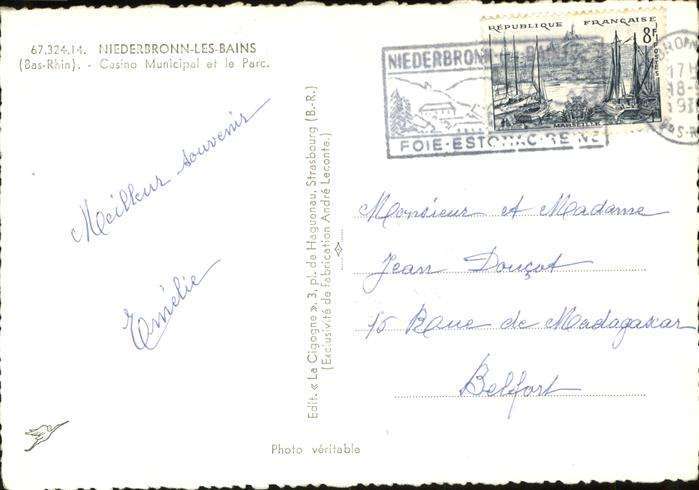 67.324.14. NIEDERBRONN-LES-BAINS
(Bas-Rhin). - Casino Municipal et le Parc.
Meilleur souvenir
Emélie
Edit. « La Cigogne », 3, pl. de Haguenau, Strasbourg (B.-R.)
(Exclusivité de fabrication André Leconte.)
Photo véritable
NIEDERBRONN-LES-BAINS
FOIE-ESTOMAC-REINS
REPUBLIQUE FRANÇAISE
8F
MARSEILLE
17H
18-
Monsieur et Madame
Jean Douçot
15 Rue de Madagascar
Belfort